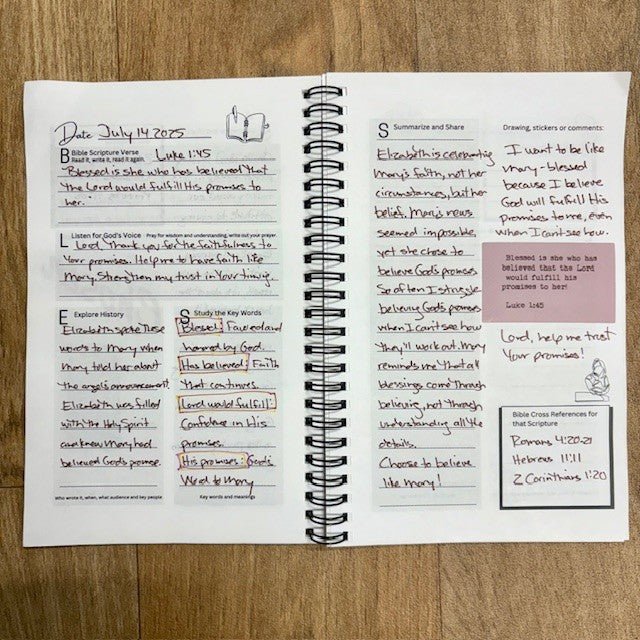 Date July 14 2025
B Bible Scripture Verse Luke 1:45
Read it, write it, read it again.
"Blessed is she who has believed that
the Lord would fulfill His promises to
her."
L Listen for God's Voice Pray for wisdom and understanding, write out your prayer.
Lord, Thank you for the faithfulness to
Your promises. Help me to have faith like
Mary. Strengthen my trust in Your timing.
E Explore History
Elizabeth spoke these
words to Mary when
Mary told her about
the angel's announcement.
Elizabeth was filled
with the Holy Spirit
and knew Mary had
believed God's promise.
Who wrote it, when, what audience and key people
S Study the Key Words
Blessed: Favored and
honored by God.
Has believed: Faith
that continues.
Lord would fulfill:
Confidence in His
promises.
His promises: God's
Word to Mary
Key words and meanings
S Summarize and Share
Elizabeth is celebrating
Mary's faith, not her
circumstances, but her
belief. Mary's news
seemed impossible,
yet she chose to
believe God's promises.
So often I struggle
believing God's promises
when I can't see how
they'll work out. Mary
reminds me that all
blessings come through
believing, not through
understanding all the
details.
Choose to believe
like Mary!
Drawing, stickers or comments:
I want to be like
Mary - blessed
because I believe
God will fulfill His
promises to me, even
when I can't see how.
Blessed is she who has
believed that the Lord
would fulfill his
promises to her!
Luke 1:45
Lord, help me trust
Your promises!
Bible Cross References for
that Scripture
Romans 4:20-21
Hebrews 11:11
2 Corinthians 1:20